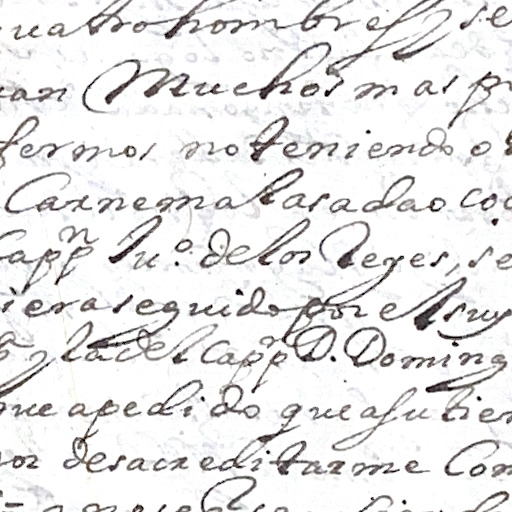 quatro hombres y se
an Muchos mas p
fermos no teniendo o
Carne mal asada o co
Cappn Ju.o de los Reyes, se
iera seguido por el suy
y la del Cappn D. Doming
ue a pedido que a su tier
or desacreditarme Con